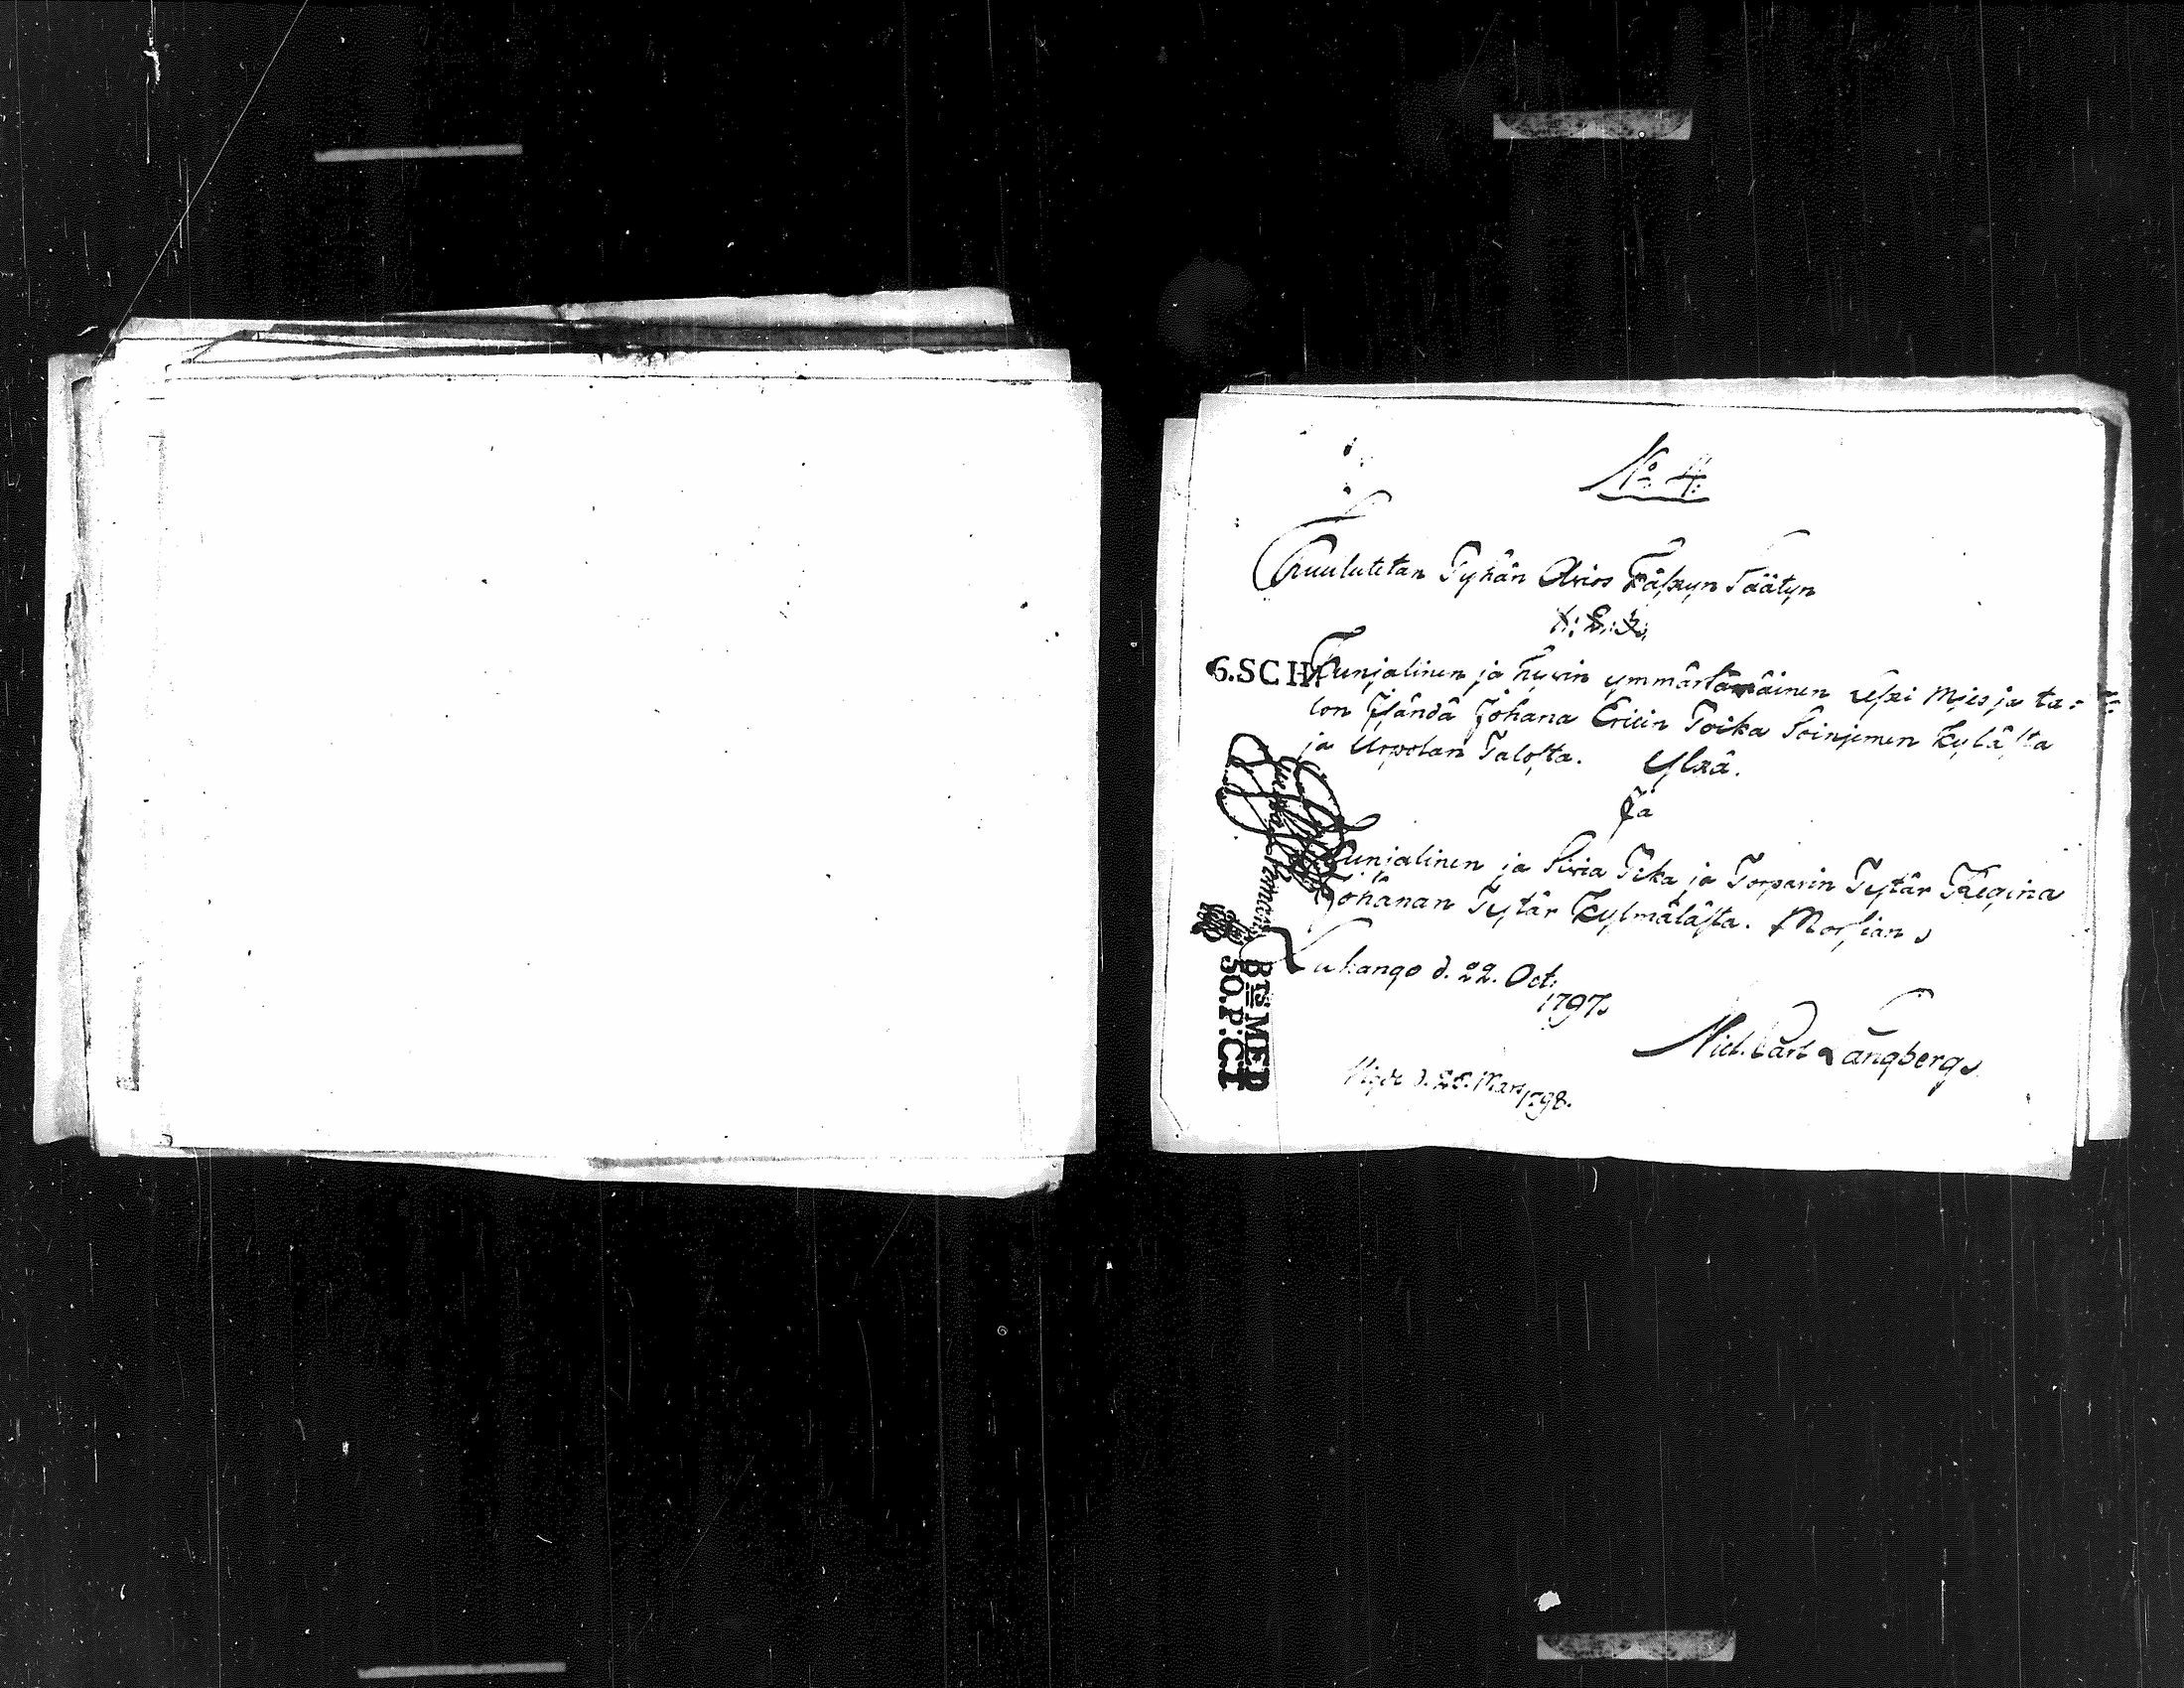 No 4:
Kuulutetan Pyhän Avios Käskyn Säätyn
1:2:3:
6.SCH.
Kunjalinen ja hyvin ymmärtäwäinen uski Mies ja ta-
lon Isändä Johana Ericin Poika Soinjemen Kylästa
ja Urpolan Talosta. Ylkä.
Ja
Kunjalinen ja Sivia Pika ja Torparin Tytär Regina
Johanan Tytär Kylmälästa. Morsian
Luhango d. 22. Oct:
1797.
Nicl. Carl Långberg
Vigde d. 25. Mars
1798.
BTS MED
50.P:CT